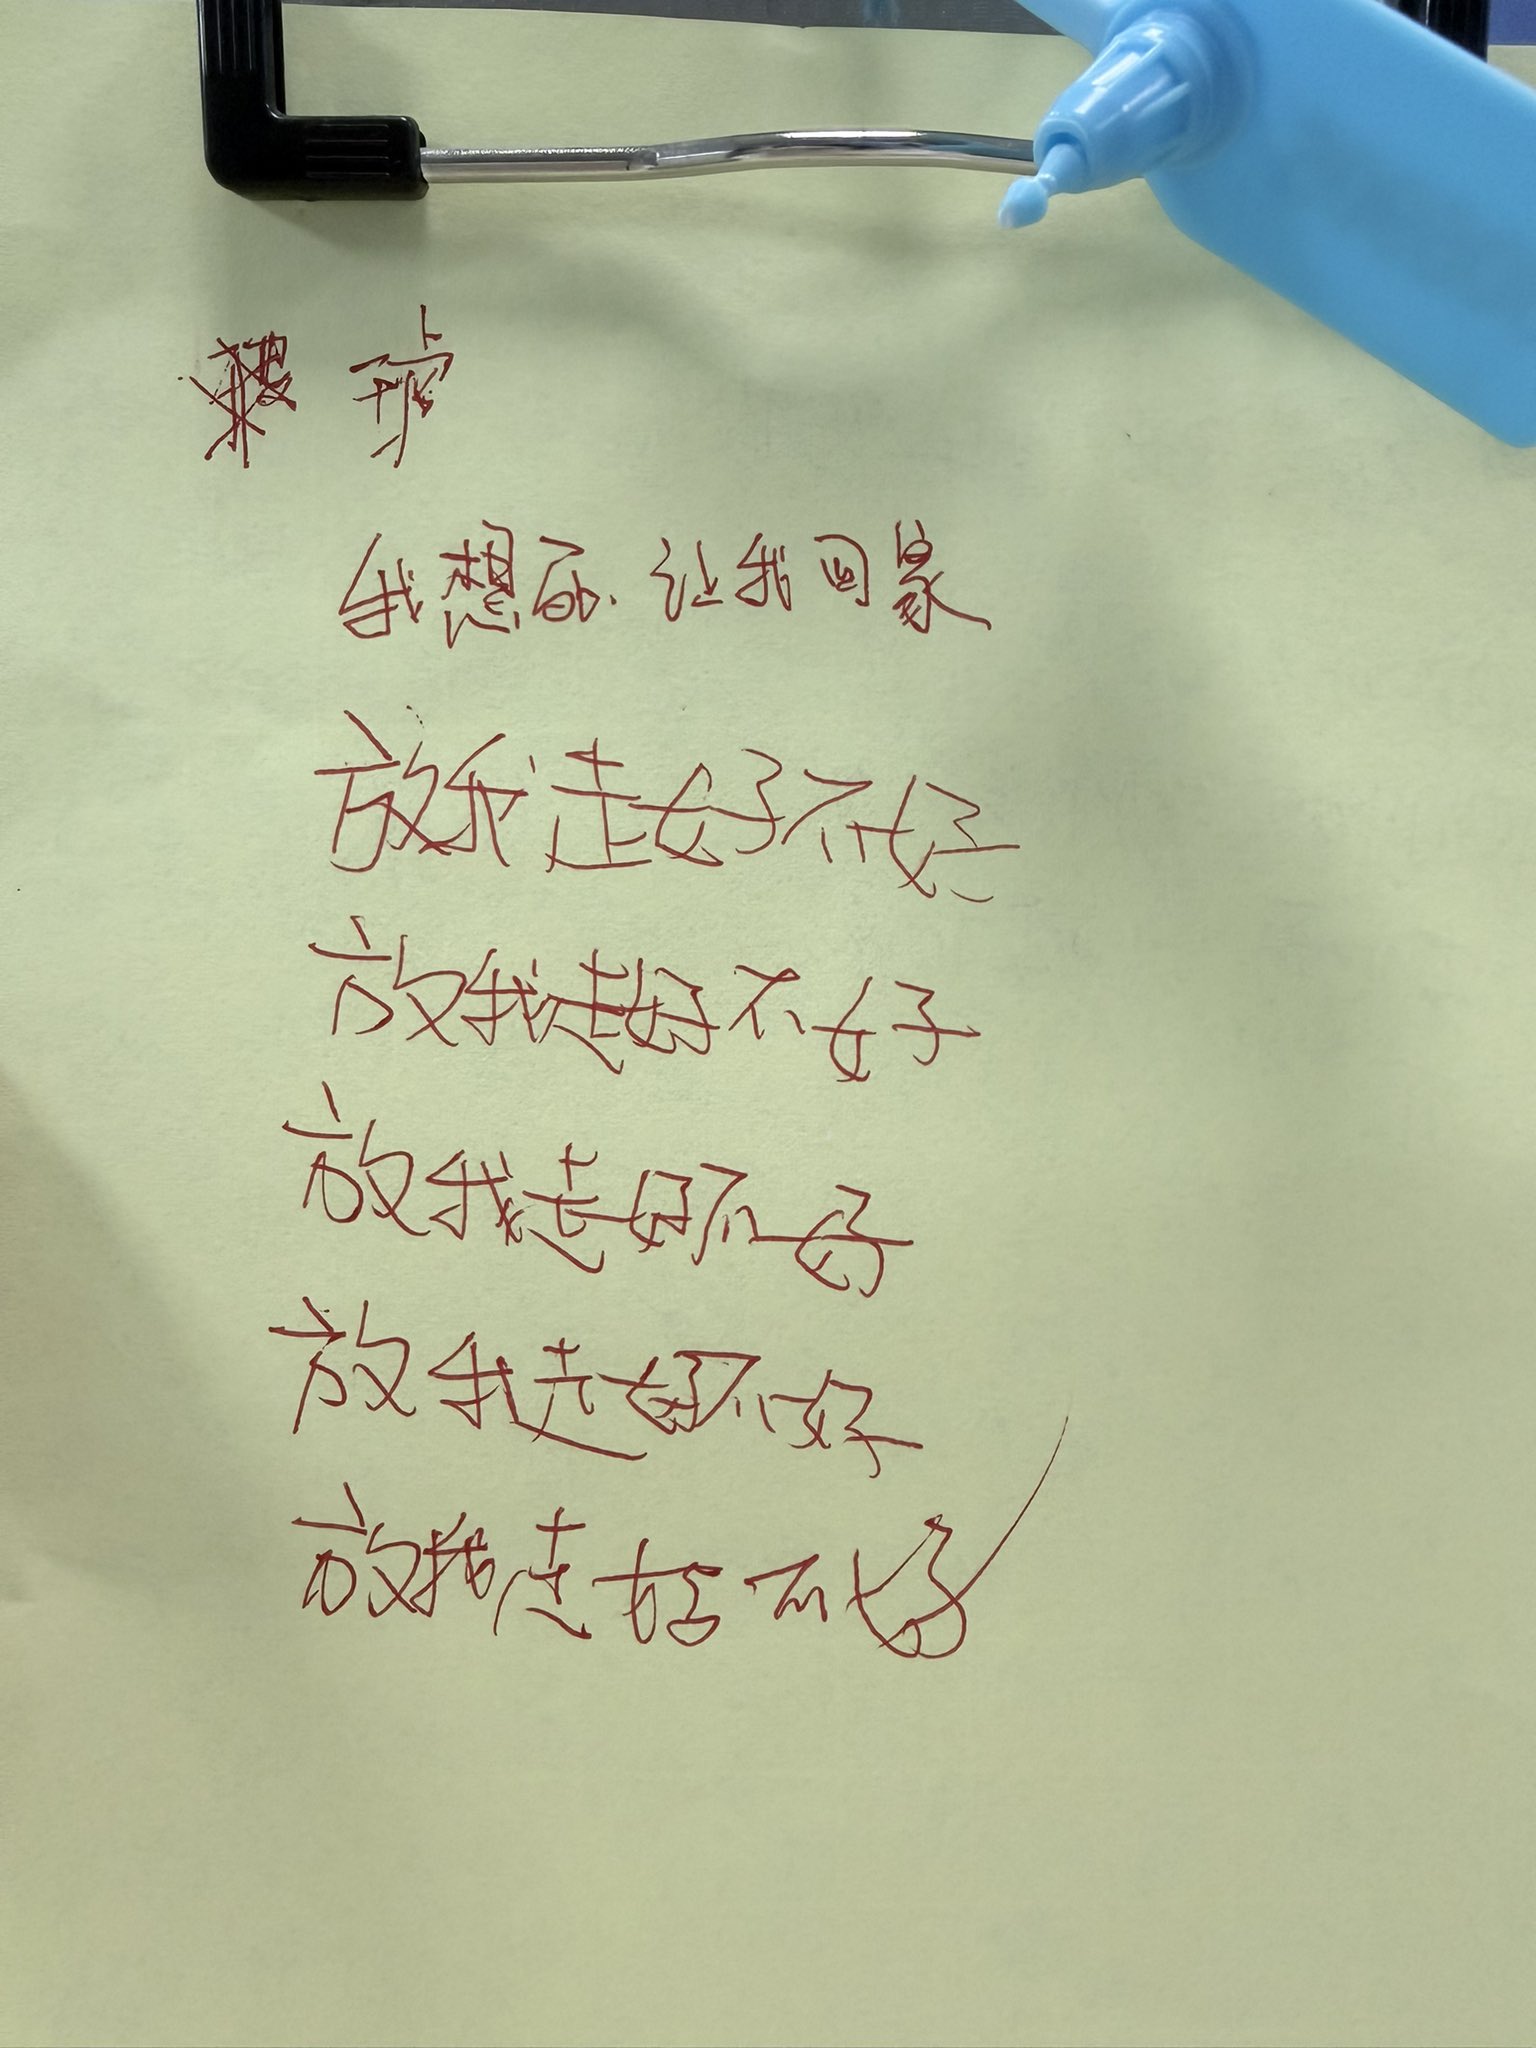 我想死.让我回家
放我走好不好
放我走好不好
放我走好不好
放我走好不好
放我走好不好